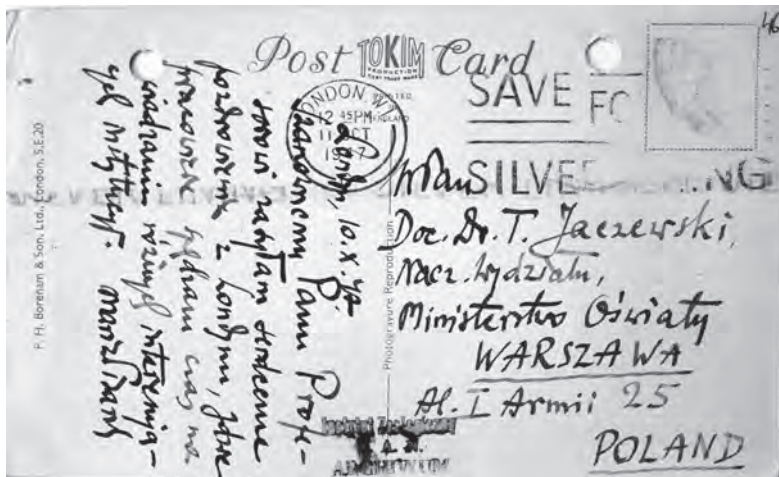 46
Post TOKIM Card
PRODUCTION
LONDON. W.1
12 45PM
11 OCT
19 7
SAVE FO
SILVE NG
PRINTED
ENGLAND
P. H. Boreham & Son, Ltd., London, S.E.20
Photogravure Reproduction
Londyn, 10.X.47
Szanownemu Panu Profe-
sorowi zasyłam serdeczne
pozdrowienia z Londynu, gdzie
pracowicie spędzam czas na
zwiedzaniu różnych interesują-
cych instytucyj.
WPan
Doc. Dr. T. Jaczewski,
Nacz. Wydziału,
Ministerstwo Oświaty
WARSZAWA
Al. I Armii 25
POLAND
Instytut Zoologiczny
P. A. N.
ARCHIWUM